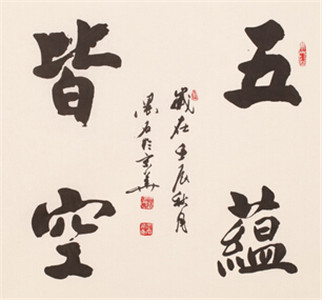 五蘊
皆空
歲在壬辰秋月
石於京華